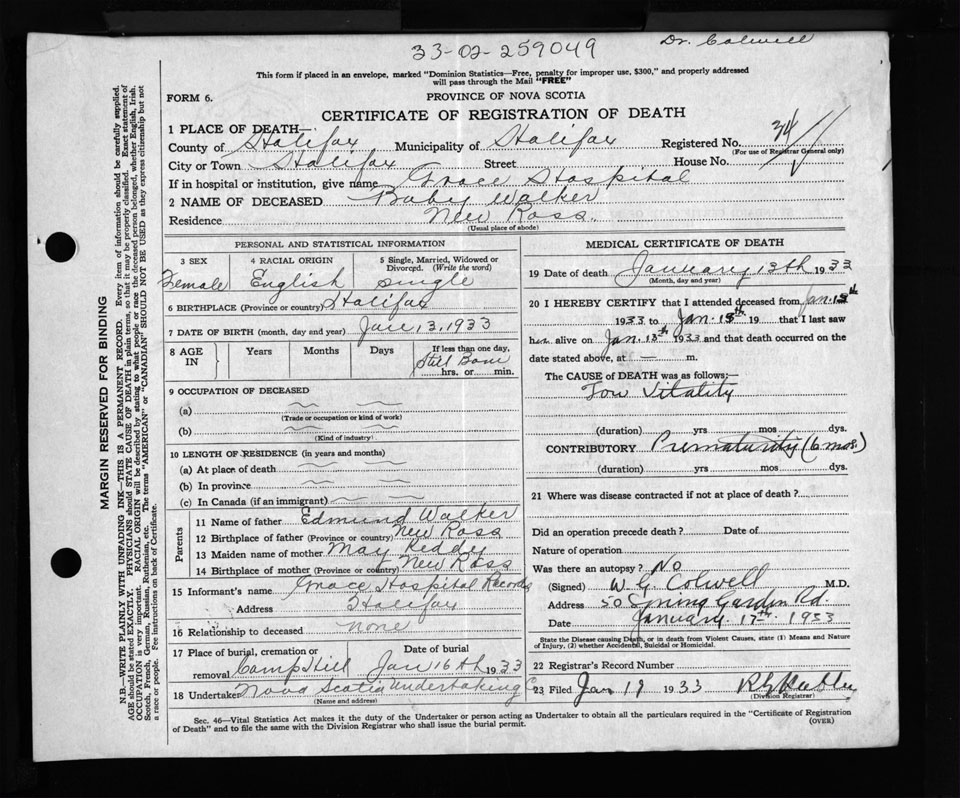 33-02-259049
Dr. Colwell
This form if placed in an envelope, marked "Dominion Statistics—Free, penalty for improper use, $300," and properly addressed
will pass through the Mail "FREE"
FORM 6.
PROVINCE OF NOVA SCOTIA
CERTIFICATE OF REGISTRATION OF DEATH
1 PLACE OF DEATH—
County of Halifax Municipality of Halifax Registered No. 34
(For use of Registrar General only)
City or Town Halifax Street House No.
If in hospital or institution, give name Grace Hospital
2 NAME OF DECEASED Baby Walker
Residence New Ross.
(Usual place of abode)
PERSONAL AND STATISTICAL INFORMATION
3 SEX 4 RACIAL ORIGIN 5 Single, Married, Widowed or
Divorced. (Write the word)
Female English Single
6 BIRTHPLACE (Province or country) Halifax
7 DATE OF BIRTH (month, day and year) Jan 13, 1933
8 AGE IN Years Months Days If less than one day,
Still Born
hrs. or min.
9 OCCUPATION OF DECEASED
(a)
(Trade or occupation or kind of work)
(b)
(Kind of industry)
10 LENGTH OF RESIDENCE (in years and months)
(a) At place of death
(b) In province
(c) In Canada (if an immigrant)
Parents
11 Name of father Edmund Walker
12 Birthplace of father (Province or country) New Ross
13 Maiden name of mother May Keddy
14 Birthplace of mother (Province or country) New Ross
15 Informant's name Grace Hospital Records
Address Halifax
16 Relationship to deceased none
17 Place of burial, cremation or removal Camp Hill
Date of burial Jan 16th 1933
18 Undertaker Nova Scotia Undertaking Co
(Name and address)
MEDICAL CERTIFICATE OF DEATH
19 Date of death January 13th 1933
(Month, day and year)
20 I HEREBY CERTIFY that I attended deceased from Jan. 13th
1933 to Jan. 13th 19 that I last saw
her alive on Jan. 13th 1933 and that death occurred on the
date stated above, at — m.
The CAUSE of DEATH was as follows:—
Low Vitality
(duration) yrs mos dys.
CONTRIBUTORY Prematurity (6 mos.)
(duration) yrs mos dys.
21 Where was disease contracted if not at place of death?
Did an operation precede death? Date of
Nature of operation
Was there an autopsy? No
(Signed) W. G. Colwell M.D.
Address 50 Spring Garden Rd.
Date January 17th 1933
State the Disease causing Death, or in death from Violent Causes, state (1) Means and Nature
of Injury, (2) whether Accidental, Suicidal or Homicidal.
22 Registrar's Record Number
23 Filed Jan 19 1933
(Division Registrar)
Sec. 46—Vital Statistics Act makes it the duty of the Undertaker or person acting as Undertaker to obtain all the particulars required in the "Certificate of Registration
of Death" and to file the same with the Division Registrar who shall issue the burial permit. (OVER)
MARGIN RESERVED FOR BINDING
N.B.—WRITE PLAINLY WITH UNFADING INK—THIS IS A PERMANENT RECORD. Every item of information should be carefully supplied.
AGE should be stated EXACTLY. PHYSICIANS should STATE CAUSE OF DEATH in plain terms, so that it may be properly classified. Exact statement of
OCCUPATION is very important. RACIAL ORIGIN will be described by stating to what people or race the deceased person belonged, whether English, Irish,
Scotch, French, German, Russian, Ruthenian, etc. The terms "AMERICAN" or "CANADIAN" SHOULD NOT BE USED as they express citizenship but not
a race or people. Fee instructions on back of Certificate.